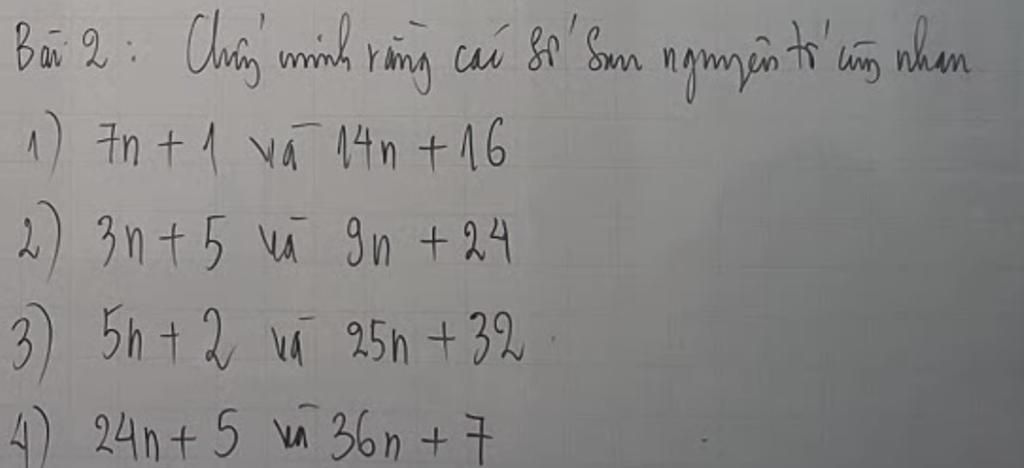 Bài 2: Chứng minh rằng các số sau nguyên tố cùng nhau
1) 7n + 1 và 14n + 16
2) 3n + 5 và 9n + 24
3) 5n + 2 và 25n + 32
4) 24n + 5 và 36n + 7